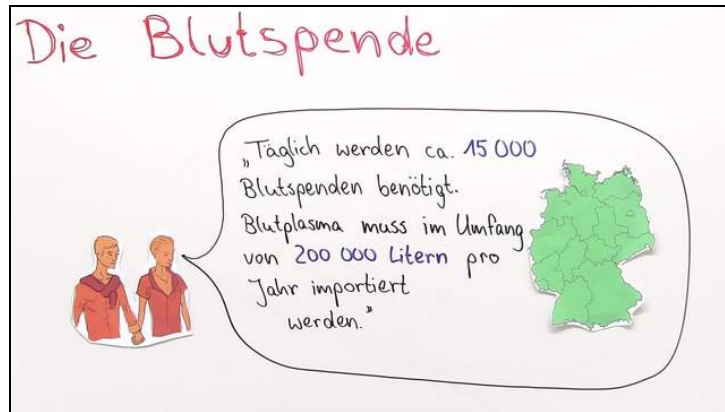 Die Blutspende
„Täglich werden ca. 15 000
Blutspenden benötigt.
Blutplasma muss im Umfang
von 200 000 Litern pro
Jahr importiert
werden.”